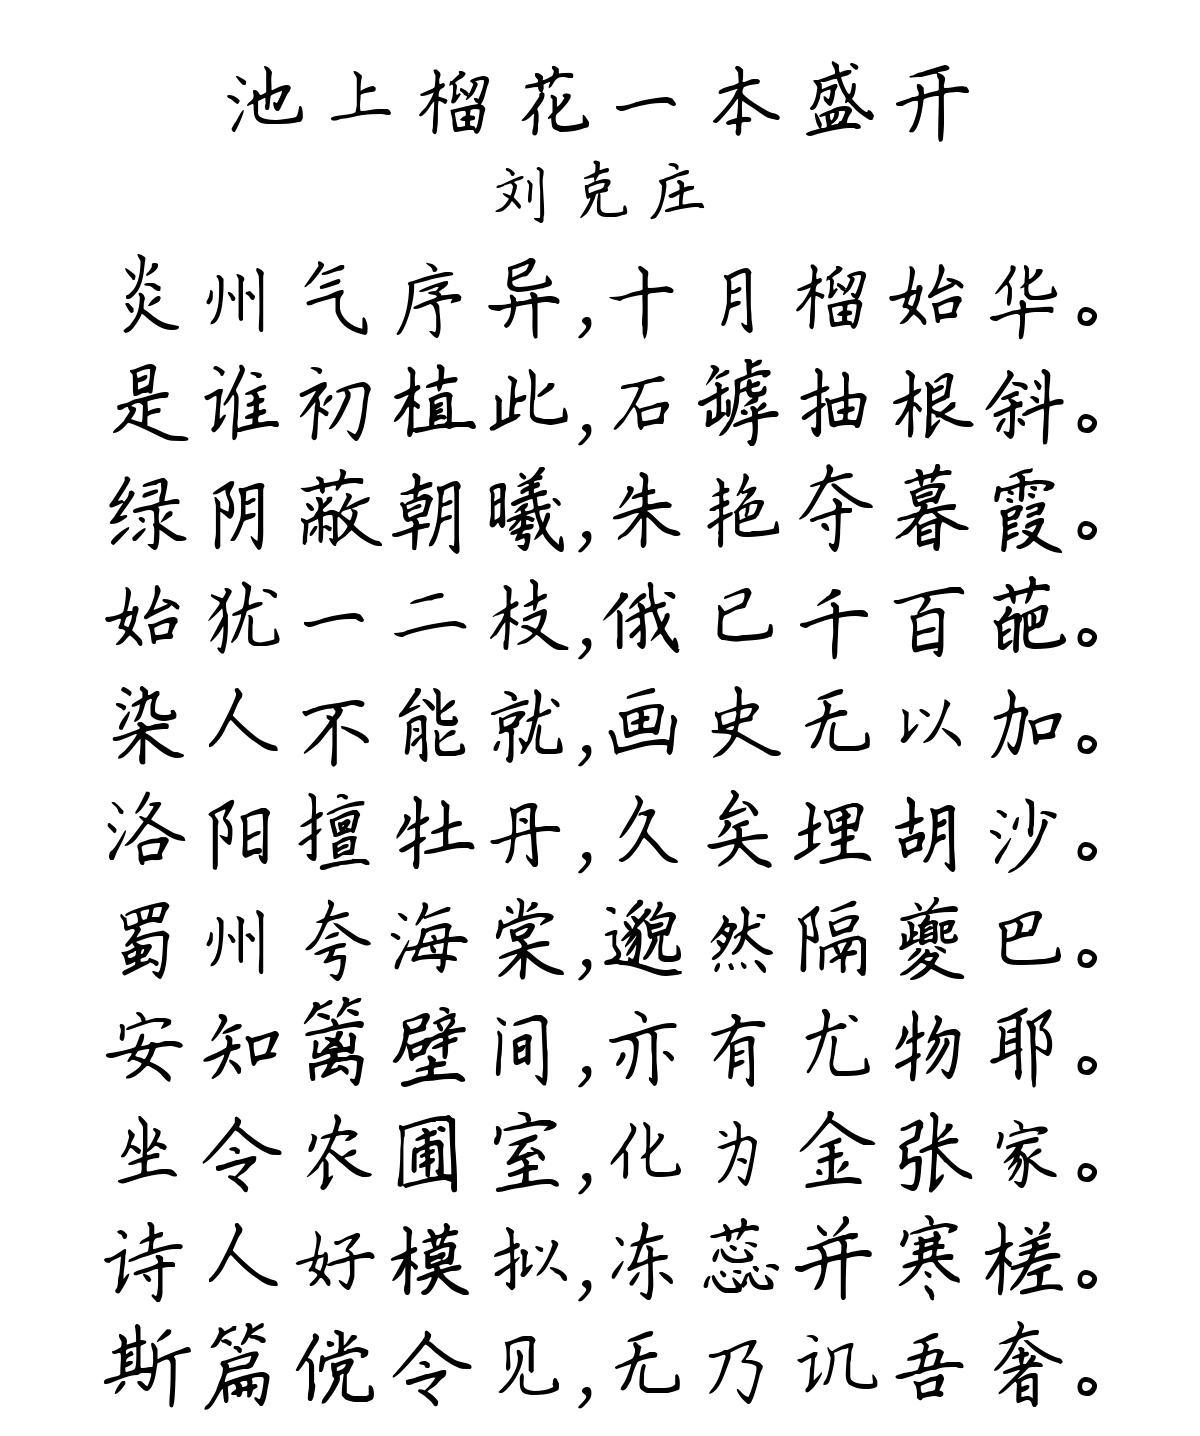 池上榴花一本盛开
刘克庄
炎州气序异,十月榴始华。
是谁初植此,石罅抽根斜。
绿阴蔽朝曦,朱艳夺暮霞。
始犹一二枝,俄已千百葩。
染人不能就,画史无以加。
洛阳擅牡丹,久矣埋胡沙。
蜀州夸海棠,邈然隔夔巴。
安知篱壁间,亦有尤物耶。
坐令农圃室,化为金张家。
诗人好模拟,冻蕊并寒槎。
斯篇傥令见,无乃讥吾奢。